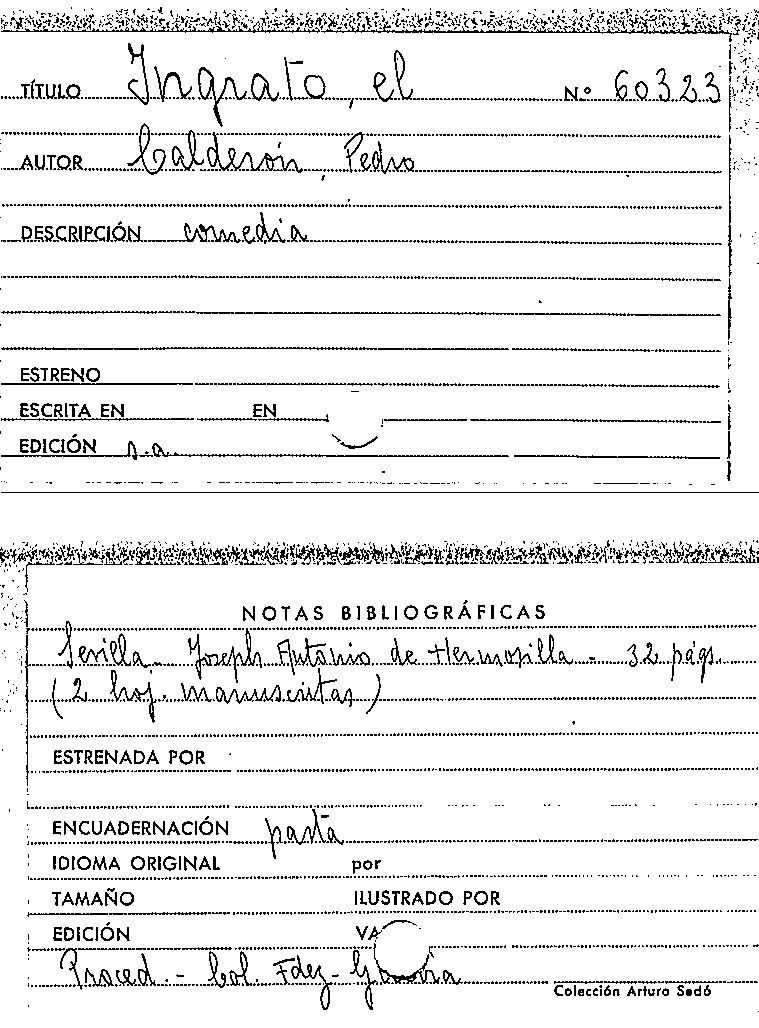 TÍTULO Ingrato, el Nº 60323
AUTOR Calderón, Pedro
DESCRIPCIÓN comedia
ESTRENO
ESCRITA EN EN
EDICIÓN s.a.
NOTAS BIBLIOGRÁFICAS
Sevilla - Joseph Antonio de Hermosilla - 32 págs.
(2 hoj. manuscritas)
ESTRENADA POR
ENCUADERNACIÓN pasta
IDIOMA ORIGINAL por
TAMAÑO ILUSTRADO POR
EDICIÓN VA
Proced. - Col. Fdez -
Colección Arturo Sedó